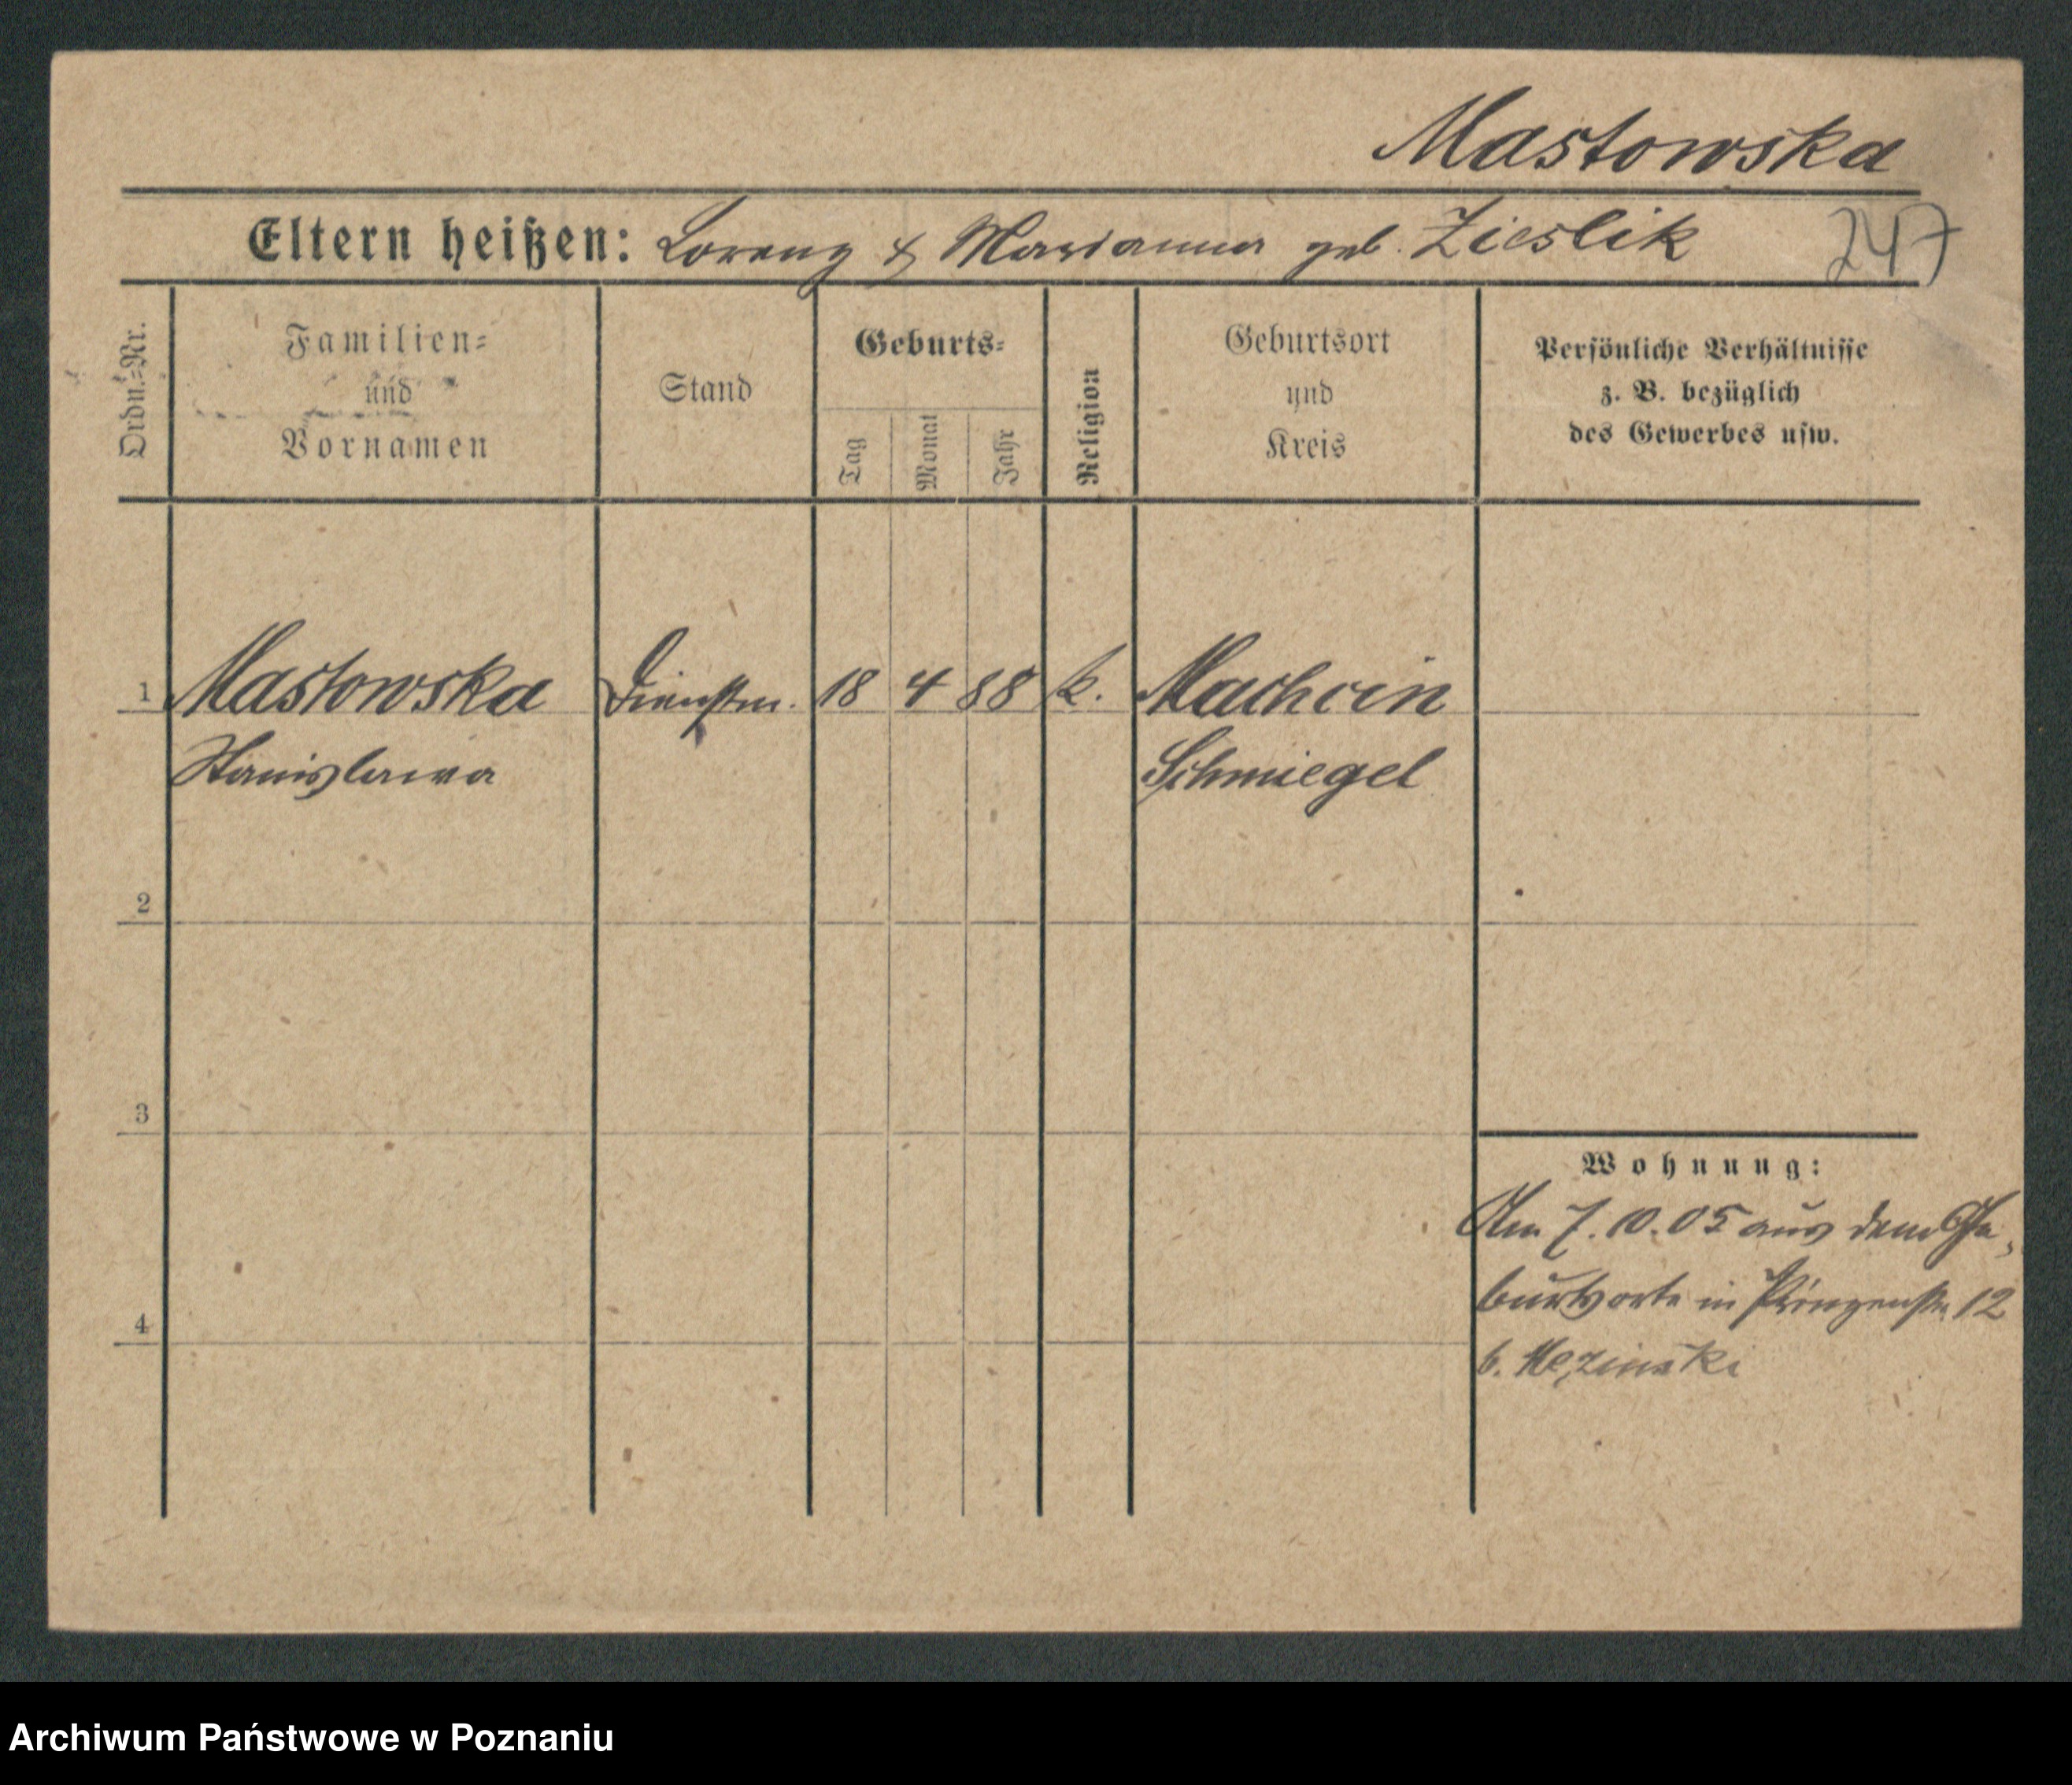 Mastowska
Eltern heißen: Lorenz & Marianna geb. Zieslik
247
Ordn.-Nr.
Familien-
und
Vornamen
Stand
Geburts-
Tag
Monat
Jahr
Religion
Geburtsort
und
Kreis
Persönliche Verhältnisse
z. B. bezüglich
des Gewerbes usw.
1 Mastowska Dienstm. 18 4 88 k. Machcin
Stanislawa Schmiegel
2
3
4
Wohnung:
Am 7.10.05 aus dem Ge-
burtsorte in Prinzenstr. 12
b.
Archiwum Państwowe w Poznaniu